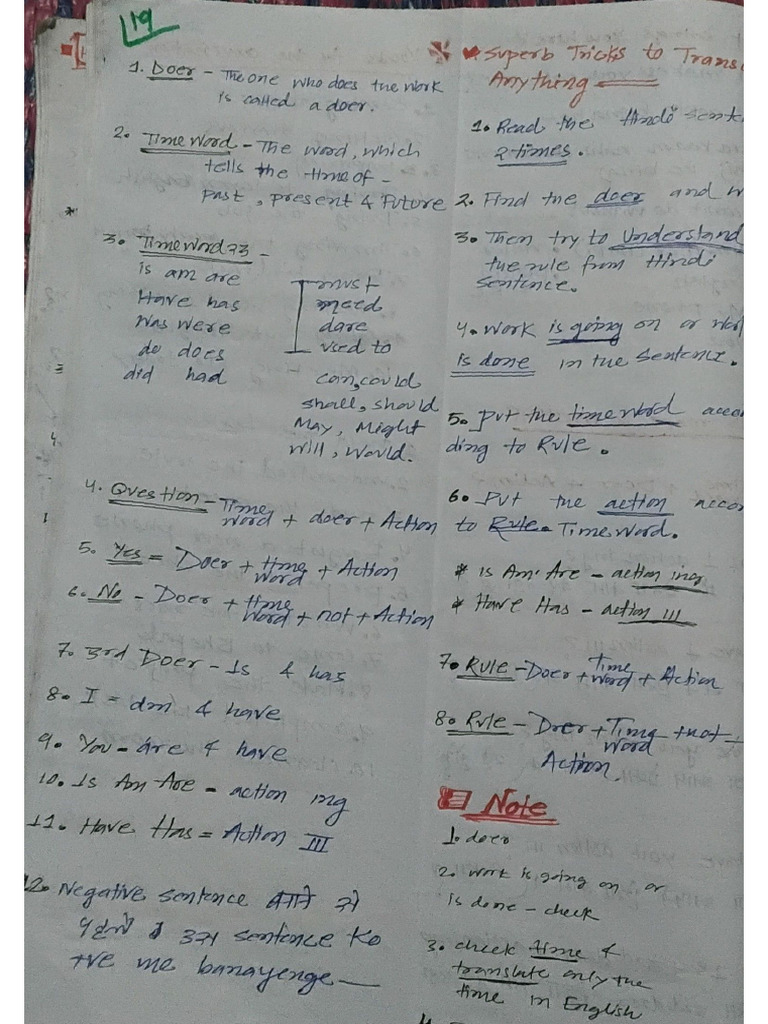 19
1. Doer - The one who does the work
is called a doer.
2. Time Word - The word, which
tells the time of -
past, present & Future
3. Time Word 23 -
is am are
Have has
Was Were
do does
did had
must
need
dare
used to
can, could
shall, should
May, Might
Will, Would.
4. Question - Time Word + doer + Action
5. Yes = Doer + time Word + Action
6. No - Doer + time Word + not + Action
7. 3rd Doer - Is & has
8. I = am & have
9. You - are & have
10. Is Am Are - action ing
11. Have Has = Action III
12. Negative sentence बनाने से
पहले उस sentence Ko
+ve me banayenge
Superb Tricks to
Anything
1. Read the Hindi
2 times.
2. Find the doer and
3. Then try to Understand
the rule from Hindi
Sentence.
4. Work is going on or
is done in the Sentence.
5. Put the time word accor
ding to Rule.
6. Put the action
to Rule Time Word.
* Is Am Are - action ing
* Have Has - action III
7. Rule - Doer + Time Word + Action
8. Rule - Doer + Time Word + not
Action.
Note
1. doer
2. work is going on or
is done - check
3. check time &
translate only the
time in English